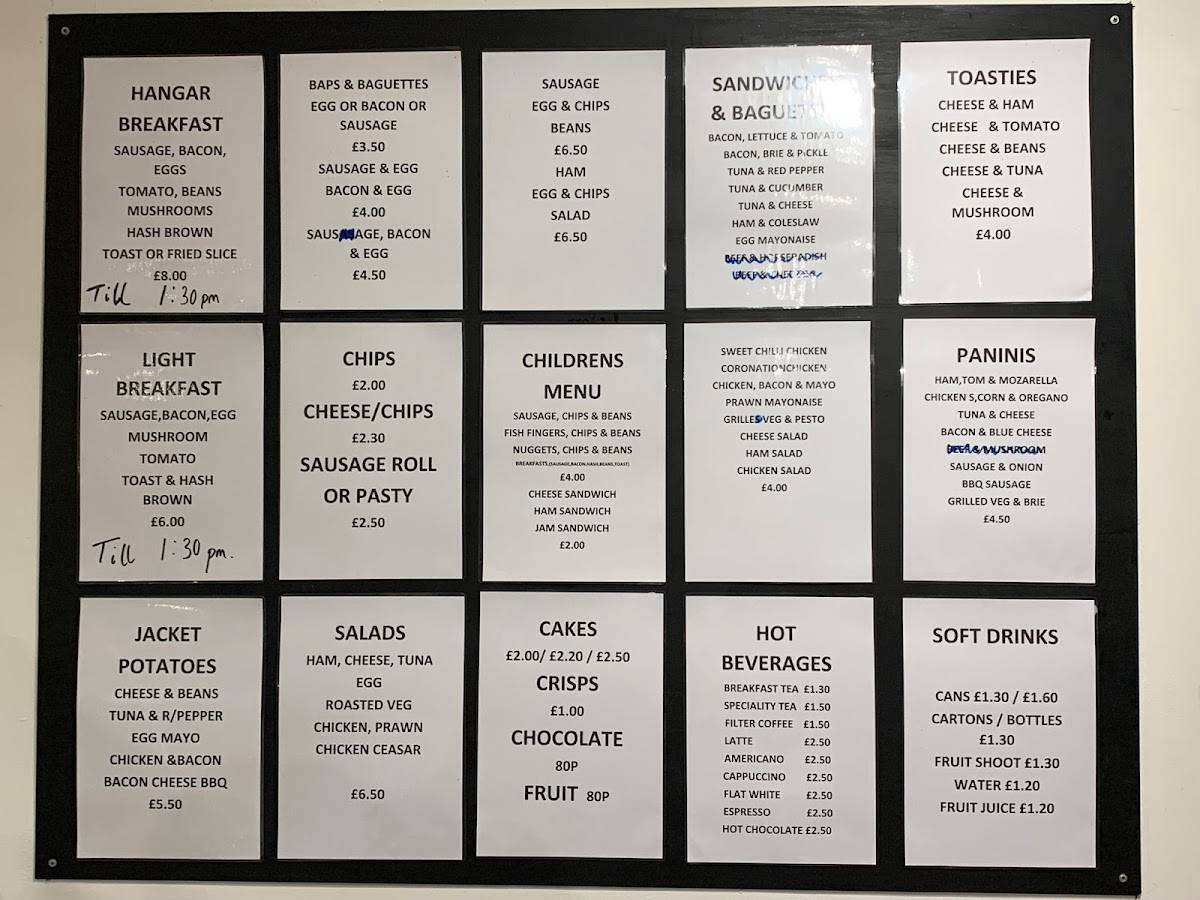 HANGAR
BREAKFAST
SAUSAGE, BACON,
EGGS
TOMATO, BEANS
MUSHROOMS
HASH BROWN
TOAST OR FRIED SLICE
£8.00
Till 1:30pm
BAPS & BAGUETTES
EGG OR BACON OR
SAUSAGE
£3.50
SAUSAGE & EGG
BACON & EGG
£4.00
SAUSAGE, BACON
& EGG
£4.50
SAUSAGE
EGG & CHIPS
BEANS
£6.50
HAM
EGG & CHIPS
SALAD
£6.50
SANDWICH
& BAGUE
BACON, LETTUCE & TOMATO
BACON, BRIE & PICKLE
TUNA & RED PEPPER
TUNA & CUCUMBER
TUNA & CHEESE
HAM & COLESLAW
EGG MAYONAISE
BEEF & HORSERADISH
TOASTIES
CHEESE & HAM
CHEESE & TOMATO
CHEESE & BEANS
CHEESE & TUNA
CHEESE &
MUSHROOM
£4.00
LIGHT
BREAKFAST
SAUSAGE,BACON,EGG
MUSHROOM
TOMATO
TOAST & HASH
BROWN
£6.00
Till 1:30 pm.
CHIPS
£2.00
CHEESE/CHIPS
£2.30
SAUSAGE ROLL
OR PASTY
£2.50
CHILDRENS
MENU
SAUSAGE, CHIPS & BEANS
FISH FINGERS, CHIPS & BEANS
NUGGETS, CHIPS & BEANS
BREAKFASTS,(SAUSAGE,BACON,HASH,BEANS,TOAST)
£4.00
CHEESE SANDWICH
HAM SANDWICH
JAM SANDWICH
£2.00
SWEET CHILLI CHICKEN
CORONATIONCHICKEN
CHICKEN, BACON & MAYO
PRAWN MAYONAISE
GRILLED VEG & PESTO
CHEESE SALAD
HAM SALAD
CHICKEN SALAD
£4.00
PANINIS
HAM,TOM & MOZARELLA
CHICKEN S,CORN & OREGANO
TUNA & CHEESE
BACON & BLUE CHEESE
BEEF & MUSHROOM
SAUSAGE & ONION
BBQ SAUSAGE
GRILLED VEG & BRIE
£4.50
JACKET
POTATOES
CHEESE & BEANS
TUNA & R/PEPPER
EGG MAYO
CHICKEN &BACON
BACON CHEESE BBQ
£5.50
SALADS
HAM, CHEESE, TUNA
EGG
ROASTED VEG
CHICKEN, PRAWN
CHICKEN CEASAR
£6.50
CAKES
£2.00/ £2.20 / £2.50
CRISPS
£1.00
CHOCOLATE
80P
FRUIT 80P
HOT
BEVERAGES
BREAKFAST TEA £1.30
SPECIALITY TEA £1.50
FILTER COFFEE £1.50
LATTE £2.50
AMERICANO £2.50
CAPPUCCINO £2.50
FLAT WHITE £2.50
ESPRESSO £2.50
HOT CHOCOLATE £2.50
SOFT DRINKS
CANS £1.30 / £1.60
CARTONS / BOTTLES
£1.30
FRUIT SHOOT £1.30
WATER £1.20
FRUIT JUICE £1.20